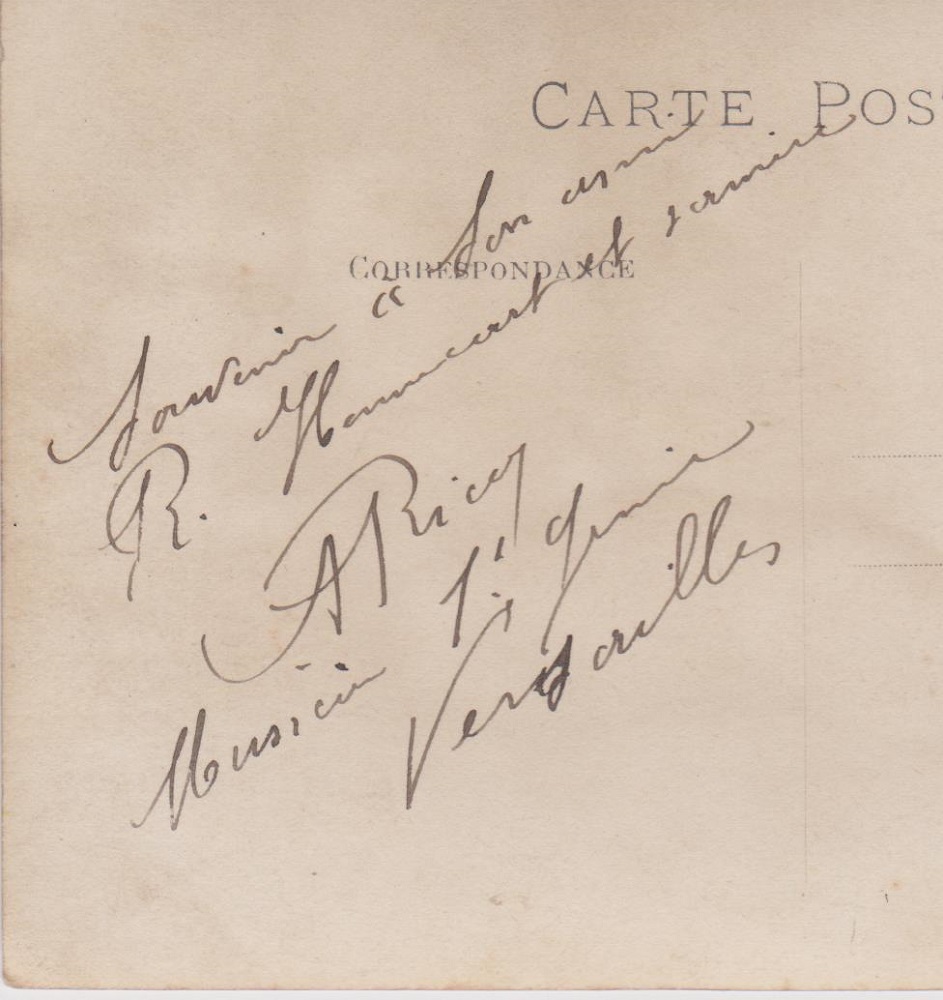 CARTE POS
CORRESPONDANCE
Souvenir à Son ami
R. Hannecart et famille
A Ricq
Musicien 1er Génie
Versailles